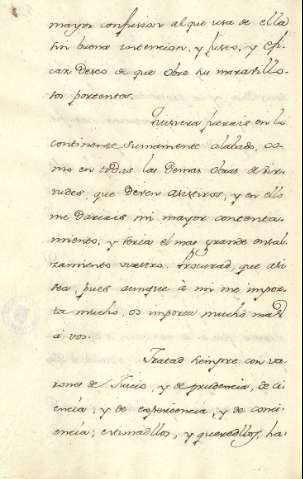 mayor confusion al que usa de ella
sin buena intencion, y justo, y efi-
caz deseo de que obre su maravillo-
sos portentos.
Quisiera fuerais en lo
continente sumamente alabado, co-
mo en todas las demas obras de vir-
tudes, que deven asistiros, y en ello
me dariais mi mayor contenta-
miento, y seria el mas grande ensal-
zamiento vuestro. Procurad, que asi
sea, pues aunque à mi me impor-
ta mucho, os importa mucho mas
á vos.
Tratad siempre con va-
rones de Juicio, y de prudencia, de ci-
encia, y de experiencia, y de conci-
encia; estimadllos, y queredllos, ha-